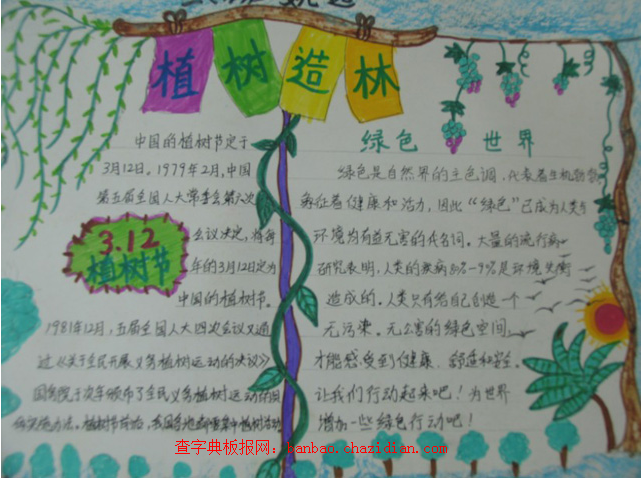 植树造林
中国的植树节定于
3月12日。1979年2月,中国
第五届全国人大常委会第六次
会议决定,将每
年的3月12日定为
中国的植树节。
3.12
植树节
1981年12月,五届全国人大四次会议又通
过《关于全民开展义务植树运动的决议》
国务院于次年颁布了全民义务植树运动的
实施办法。植树节前后,各国各地都要集中植树
绿色世界
绿色是自然界的主色调,代表着生机
象征着健康和活力,因此“绿色”已成为人类与
环境均有益无害的代名词。大量的流行病
研究表明,人类的疾病
是环境失衡
造成的。人类只有给自己创造一个
无污染。无公害的绿色空间,
才能感受到健康、舒适和安全。
让我们行动起来吧!为世界
增加一些绿色行动吧!
查字典板报网:banbao.chazidian.com